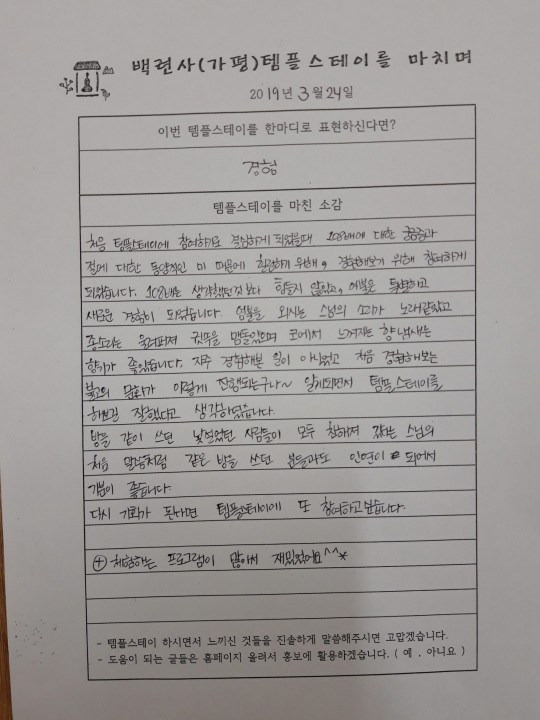 백련사(가평)템플스테이를 마치며
2019년 3월 24일
이번 템플스테이를 한마디로 표현하신다면?
경험
템플스테이를 마친 소감
처음 템플스테이에 참여하기로 결심하게 되었을때 108배에 대한 궁금증과
절에 대한 동양적인 미 때문에 힐링하기 위해, 경험해보기 위해 참여하게
되었습니다. 108배는 생각했던것 보다 힘들지 않았고, 예불은 특별하고
새로운 경험이 되었습니다. 염불을 외시는 스님의 소리가 노래같았고
종소리는 울려퍼져 귓뚜을 맴돌았으며 코에서 느껴지는 향 냄새는
향기가 좋았습니다. 자주 경험해본 일이 아니었고 처음 경험해보는
불교의 문화가 이렇게 진행되는구나~ 알게되면서 템플스테이를
해보길 잘했다고 생각하였습니다.
방을 같이 쓰던 낯설었던 사람들이 모두 친해져 갔고 스님의
처음 말씀처럼 같은 방을 쓰던 분들과도 인연이 되어서
기분이 좋습니다.
다시 기회가 된다면 템플스테이에 또 참여하고싶습니다.
+ 체험하는 프로그램이 많아서 재밌었어요^^*
- 템플스테이 하시면서 느끼신 것들을 진솔하게 말씀해주시면 고맙겠습니다.
- 도움이 되는 글들은 홈페이지 올려서 홍보에 활용하겠습니다. ( 예 . 아니요 )